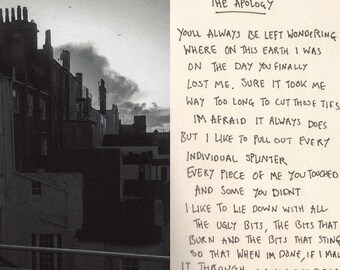 THE APOLOGY
YOULL ALWAYS BE LEFT WONDERING
WHERE ON THIS EARTH I WAS
ON THE DAY YOU FINALLY
LOST ME. SURE IT TOOK ME
WAY TOO LONG TO CUT THOSE TIES
I'M AFRAID IT ALWAYS DOES
BUT I LIKE TO PULL OUT EVERY
INDIVIDUAL SPLINTER
EVERY PIECE OF ME YOU TOUCHED
AND SOME YOU DIDNT
I LIKE TO LIE DOWN WITH ALL
THE UGLY BITS, THE BITS THAT
BURN AND THE BITS THAT STING
SO THAT WHEN IM DONE, IF I MA
IT THROUGH